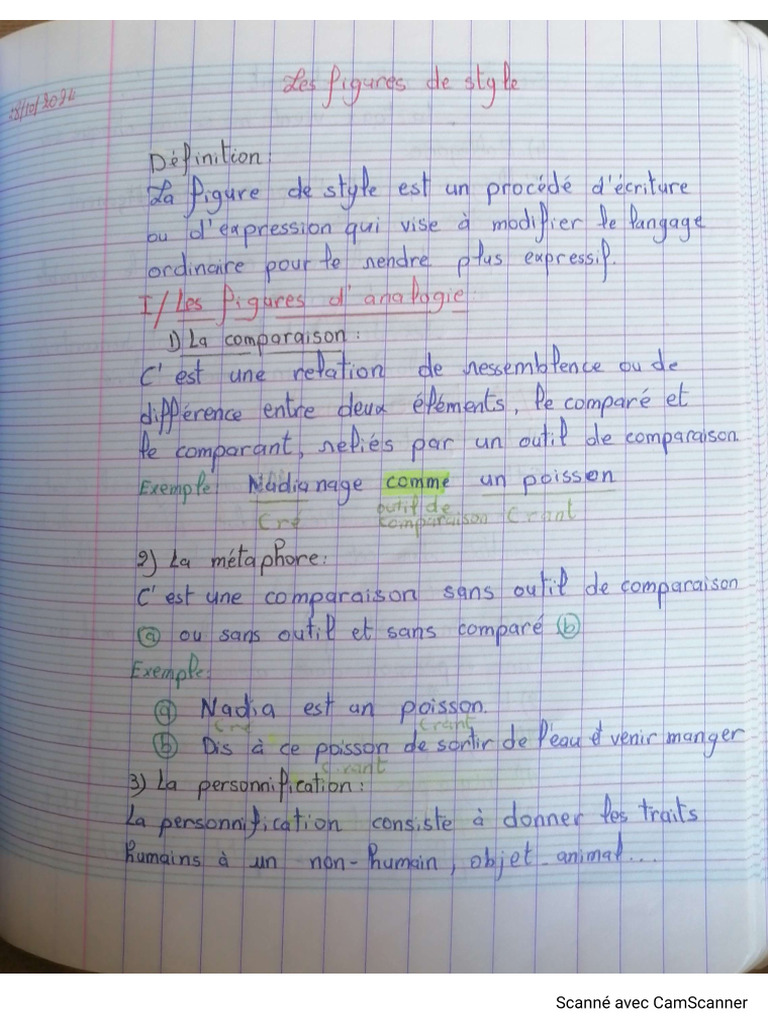 Les figures de style
/10/2024
Définition:
La figure de style est un procédé d'écriture
ou d'expression qui vise à modifier le langage
ordinaire pour le rendre plus expressif.
I/Les figures d'analogie:
1) La comparaison:
C'est une relation de ressemblence ou de
différence entre deux éléments, le comparé et
le comparant, reliés par un outil de comparaison
Exemple: Nadia nage comme un poisson
Cré outil de comparaison Crant
2) La métaphore:
C'est une comparaison sans outil de comparaison
ⓐ ou sans outil et sans comparé ⓑ
Exemple:
ⓐ Nadia est un poisson.
Cré Crant
ⓑ Dis à ce poisson de sortir de l'eau et venir manger
Crant
3) La personnification:
La personnification consiste à donner les traits
humains à un non-humain, objet animal...
Scanné avec CamScanner